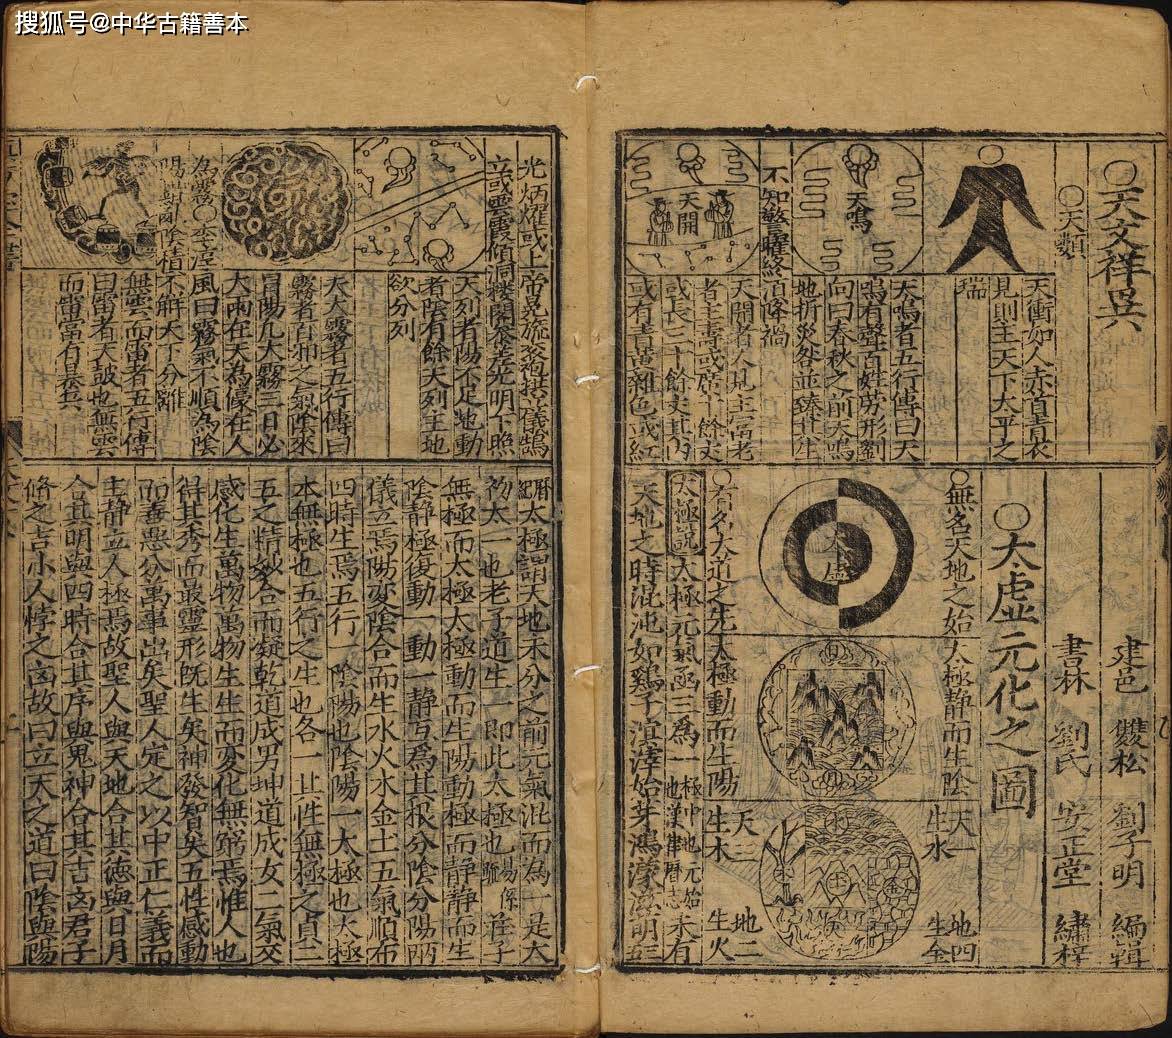 搜狐号@中华古籍善本
〇天文祥異
〇天類
天衝如人赤首青衣
見則主天下太平之
瑞
天鳴
天鳴者五行傳曰天
鳴有聲百姓劳形劉
向曰春秋之前天鳴
地折災咎並臻其生
不知警曄終
湏降禍
天開
天開者人見主富老
者主壽或席十餘丈
或長三十餘丈其內
或有青黄雜色或紅
建邑 雙松 劉子明 編輯
書林 劉氏 安正堂 繡梓
〇太虛元化之圖
〇無名天地之始太極静而生陰
天一生水
地四生金
太虛
〇有名大道之先太極動而生陽
天三生木
地二生火
太極説太極元氣函三為一極中也元始也漢律曆志未有
天地之時混沌如鷄子溟涬始芽鴻濛滋萌
光炳燿或上帝晃旒
天列者陽不足地動
者陰有餘天列主地
欲分列
天大霧者五行傳曰
霧者百邪之氣陰來
冒陽凡大霧三日必
大雨在天為濛在人
為霧〇李淳
風曰霧氣不順為陰
陽 陰積
不解天下分離
無雲而雷者五行傳
曰雷者天鼓也無雲
而雷當有暴兵
曆紀太極謂天地未分之前元氣混而為一是太
初太一也老子道生一即此太極也 莊子
無極而太極太極動而生陽動極而静静而生
陰静極復動一動一静互為其根分陰分陽兩
儀立焉陽変陰合而生水火木金土五氣順布
四時生焉五行一陰陽也陰陽一太極也太極
本無極也五行之生也各一其性無極之貞二
五之精妙合而凝乾道成男坤道成女二氣交
感化生萬物萬物生生而変化無窮焉惟人也
得其秀而最靈形既生矣神發智矣五性感動
而善惡分萬事出矣聖人定之以中正仁義而
主静立人極焉故聖人與天地合其德與日月
合其明與四時合其序與鬼神合其吉凶君子
脩之吉小人悖之凶故曰立天之道曰陰與陽